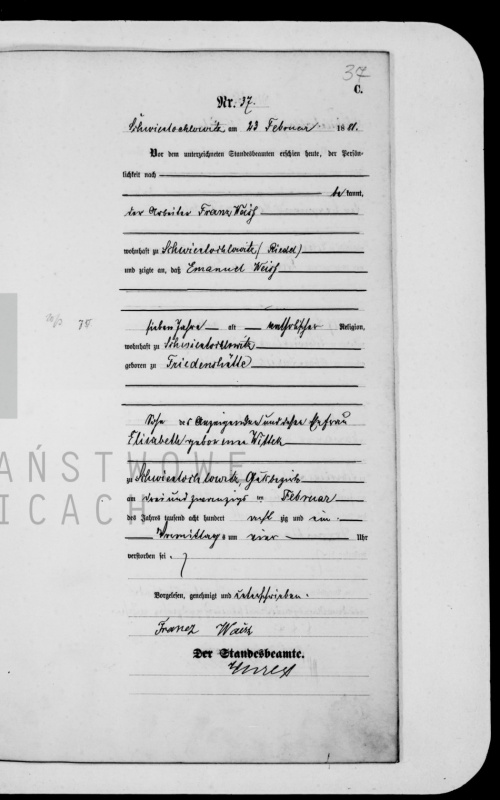 37
C.
Nr. 37.
Schwientochlowitz am 23 Februar 1881.
Vor dem unterzeichneten Standesbeamten erschien heute, der Persön-
lichkeit nach
be kannt,
der Arbeiter Franz
wohnhaft zu Schwientochlowitz
und zeigte an, daß Emanuel
35
sieben Jahre alt katholischer Religion,
wohnhaft zu Schwientochlowitz
geboren zu Friedenshütte
Sohn des Anzeigenden und dessen Ehefrau
Elisabeth geborenen Wittek
zu Schwientochlowitz Gutsbezirk
am drei und zwanzigsten Februar
des Jahres tausend acht hundert acht zig und ein
Vormittags um vier Uhr
verstorben sei.
Vorgelesen, genehmigt und unterschrieben.
Franz
Der Standesbeamte.
PAŃSTWOWE
ICACH